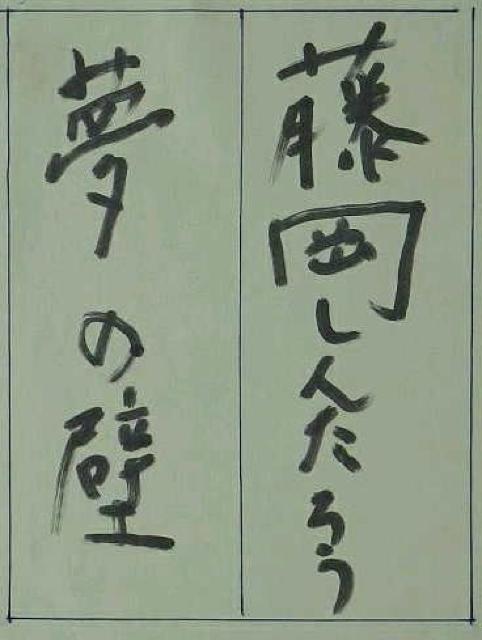 藤岡しんたろう
夢の壁